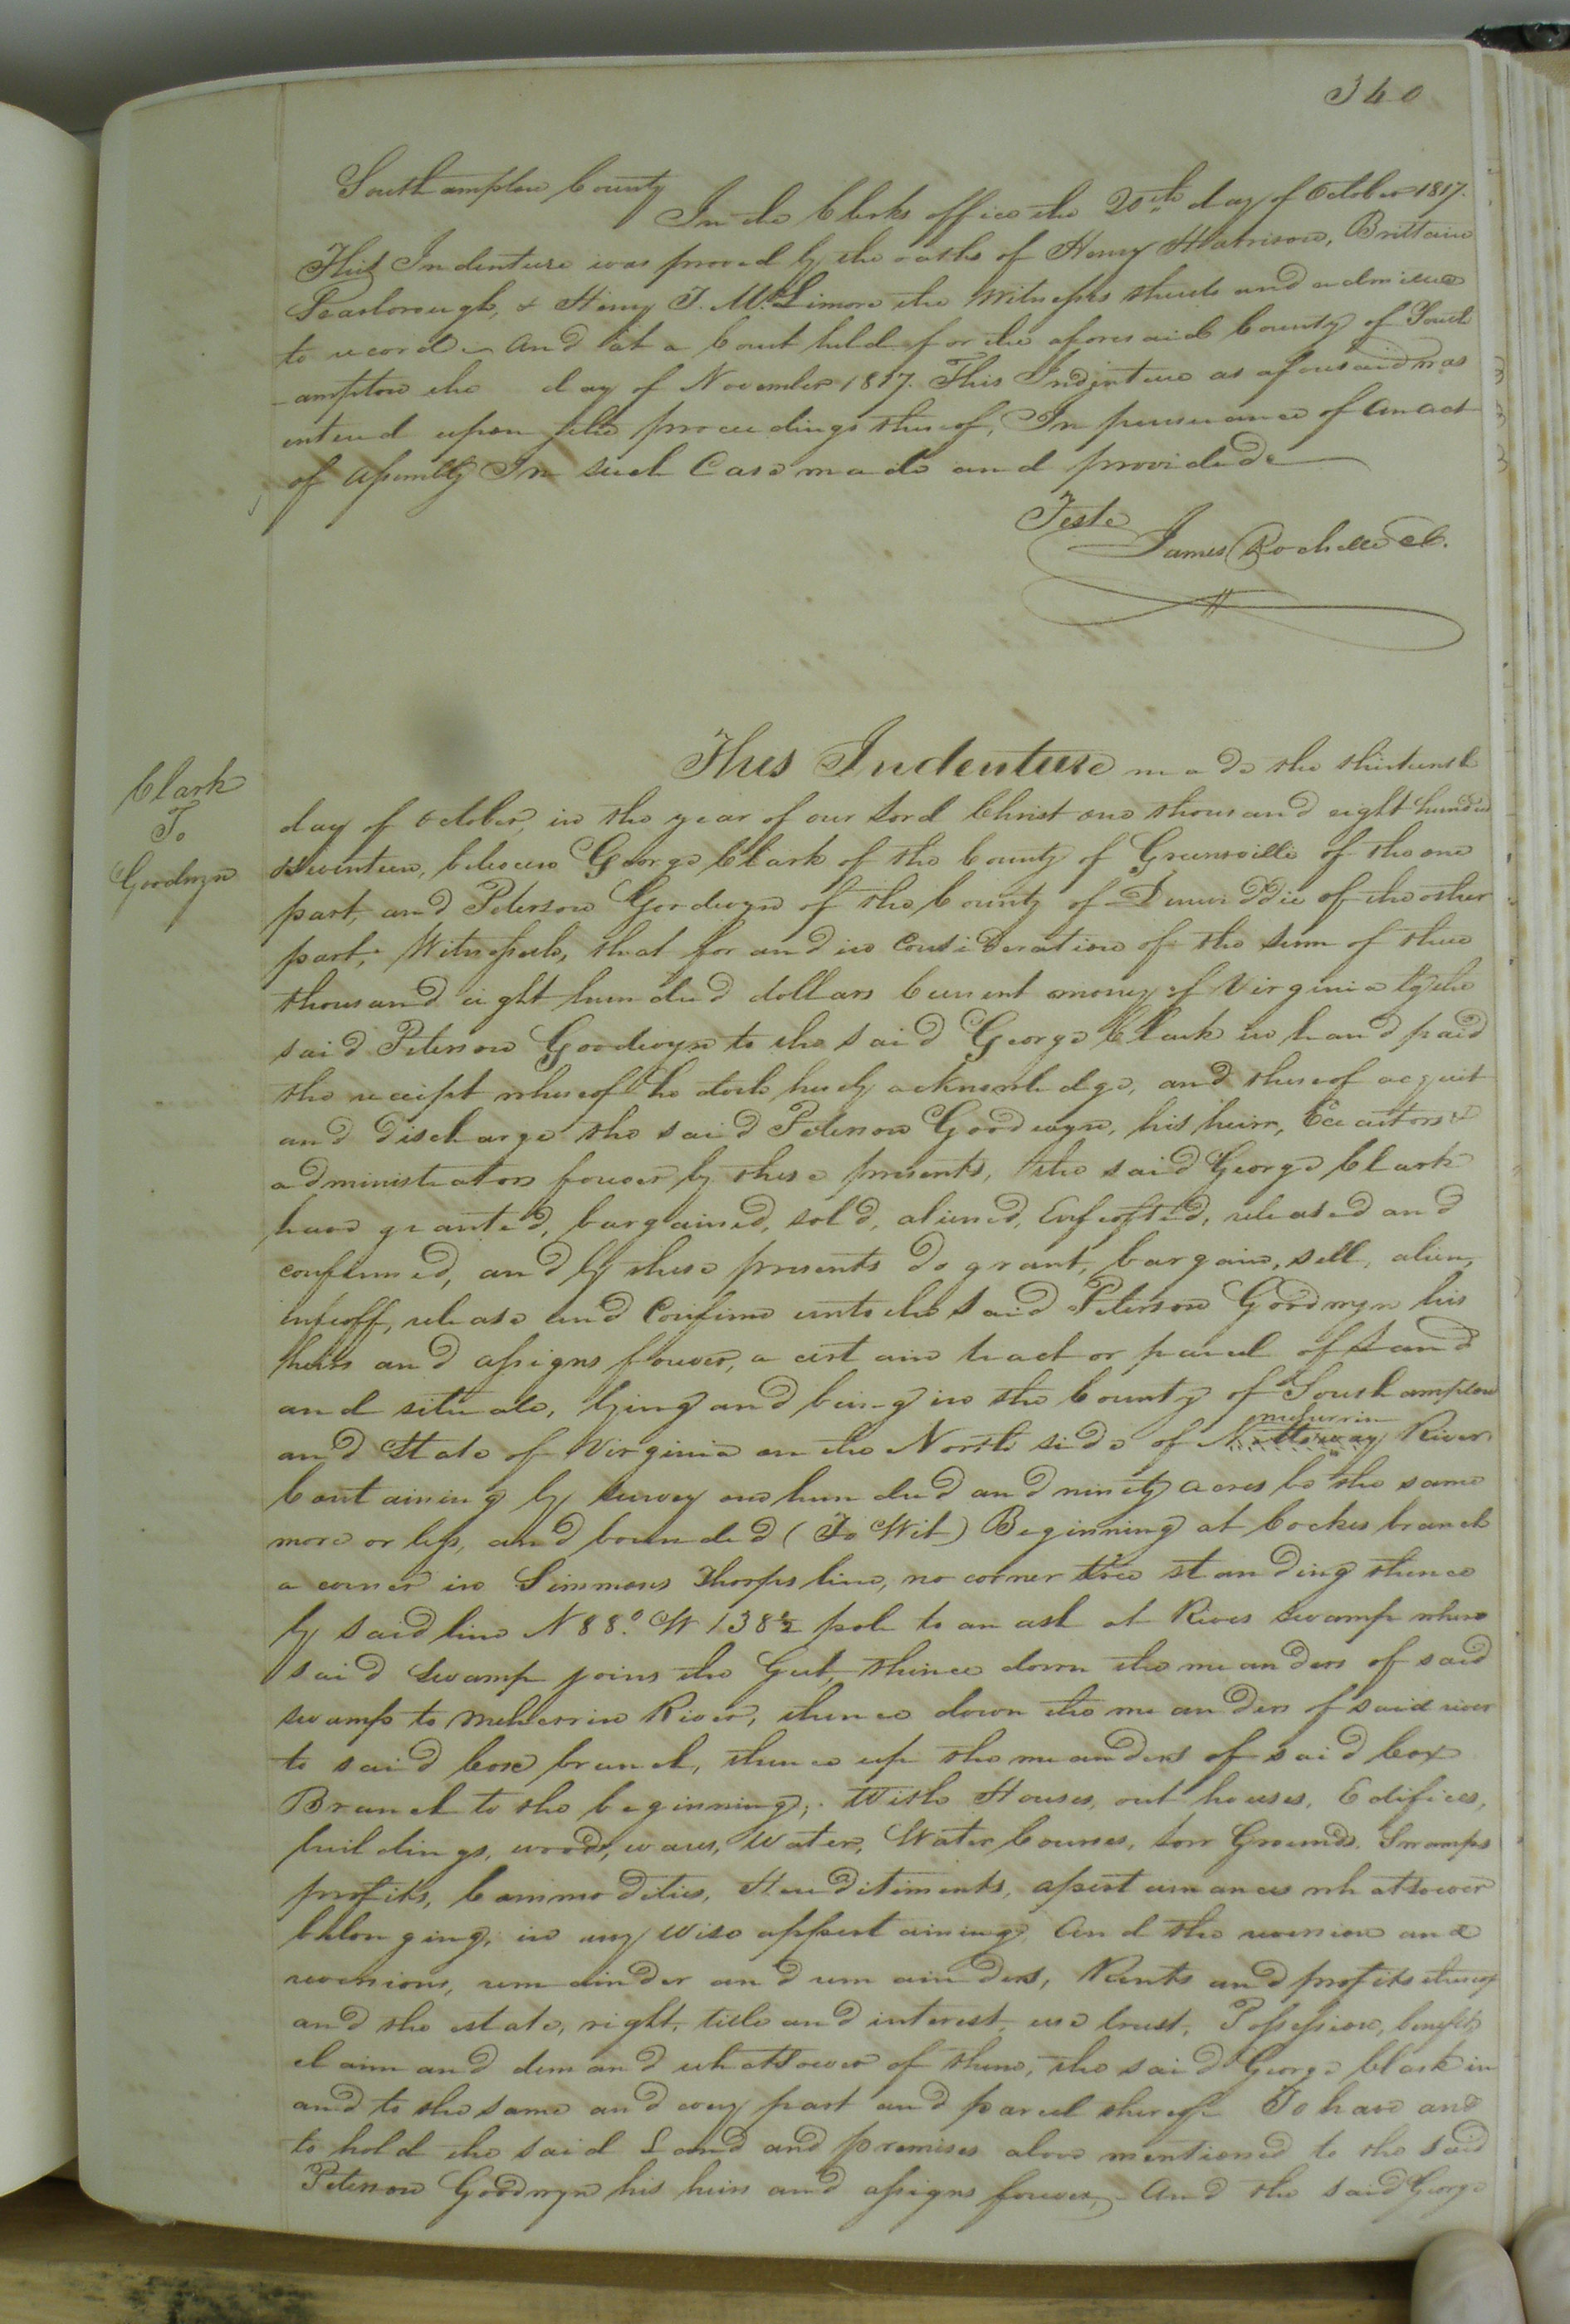 340
Southampton County
In the Clerks office the 20th day of October 1817.
This Indenture was proved by the oaths of Henry Harrison, Brittain
Scarborough, & Henry T. McLimore the Witnesses thereto and admitted
to record And at a Court held for the aforesaid County of South
-ampton the day of November 1817. This Indenture as aforesaid was
entered upon the proceedings thereof, In pursuance of an act
of assembly In such Case made and provided
Teste
James Rochelle Cl.
Clark
To
Goodwyn
This Indenture made the thirteenth
day of October, in the year of our Lord Christ one thousand eight hundred
Seventeen, between George Clark of the County of Greensville of the one
part, and Peterson Goodwyn of the County of Dinwiddie of the other
part, Witnesseth, that for and in Consideration of the sum of three
thousand eight hundred dollars Current money of Virginia by the
said Peterson Goodwyn to the said George Clark in hand paid
the receipt whereof he doth hereby acknowledge, and thereof acquit
and discharge the said Peterson Goodwyn, his heirs, Executors &
administrators forever by these presents, the said George Clark
have granted, bargained, sold, aliened, Enfeoffed, released and
confirmed, and by these presents do grant, bargain, sell, alien,
enfeoff, release and Confirm unto the said Peterson Goodwyn his
heirs and assigns forever, a certain tract or parcel of Land
and situate, lying and being in the County of Southampton
meherrin
and State of Virginia on the North side of Nottoway River
Containing by survey one hundred and ninety acres be the same
more or less, and bounded (To Wit) Beginning at Cockes branch
a corner in Simmons Thorps line, no corner tree standing thence
by said line N 88.° W 138½ pole to an ash at Rives Swamp where
said Swamp joins the Gut, thence down the meanders of said
swamp to meherrin River, thence down the meanders of said river
to said Cox branch, thence up the meanders of said Cox
Branch to the beginning; With Houses, out houses, Edifices,
buildings, woods, ways, Waters, Water Courses, low Grounds, Swamps
profits, Commodities, Hereditiments, apertunances whatsoever
belonging, in any wise appertaining And the reversion and
reversions, remainder and remainders, Rents and profits thereof
and the estate, right, title and interest, use trust, Possession, benefit,
claim and demand whatsoever of them, the said George Clark in
and to the same and every part and parcel thereof To have and
to hold the said Land and premises above mentioned to the said
Peterson Goodwyn his heirs and assigns forever, And the said George